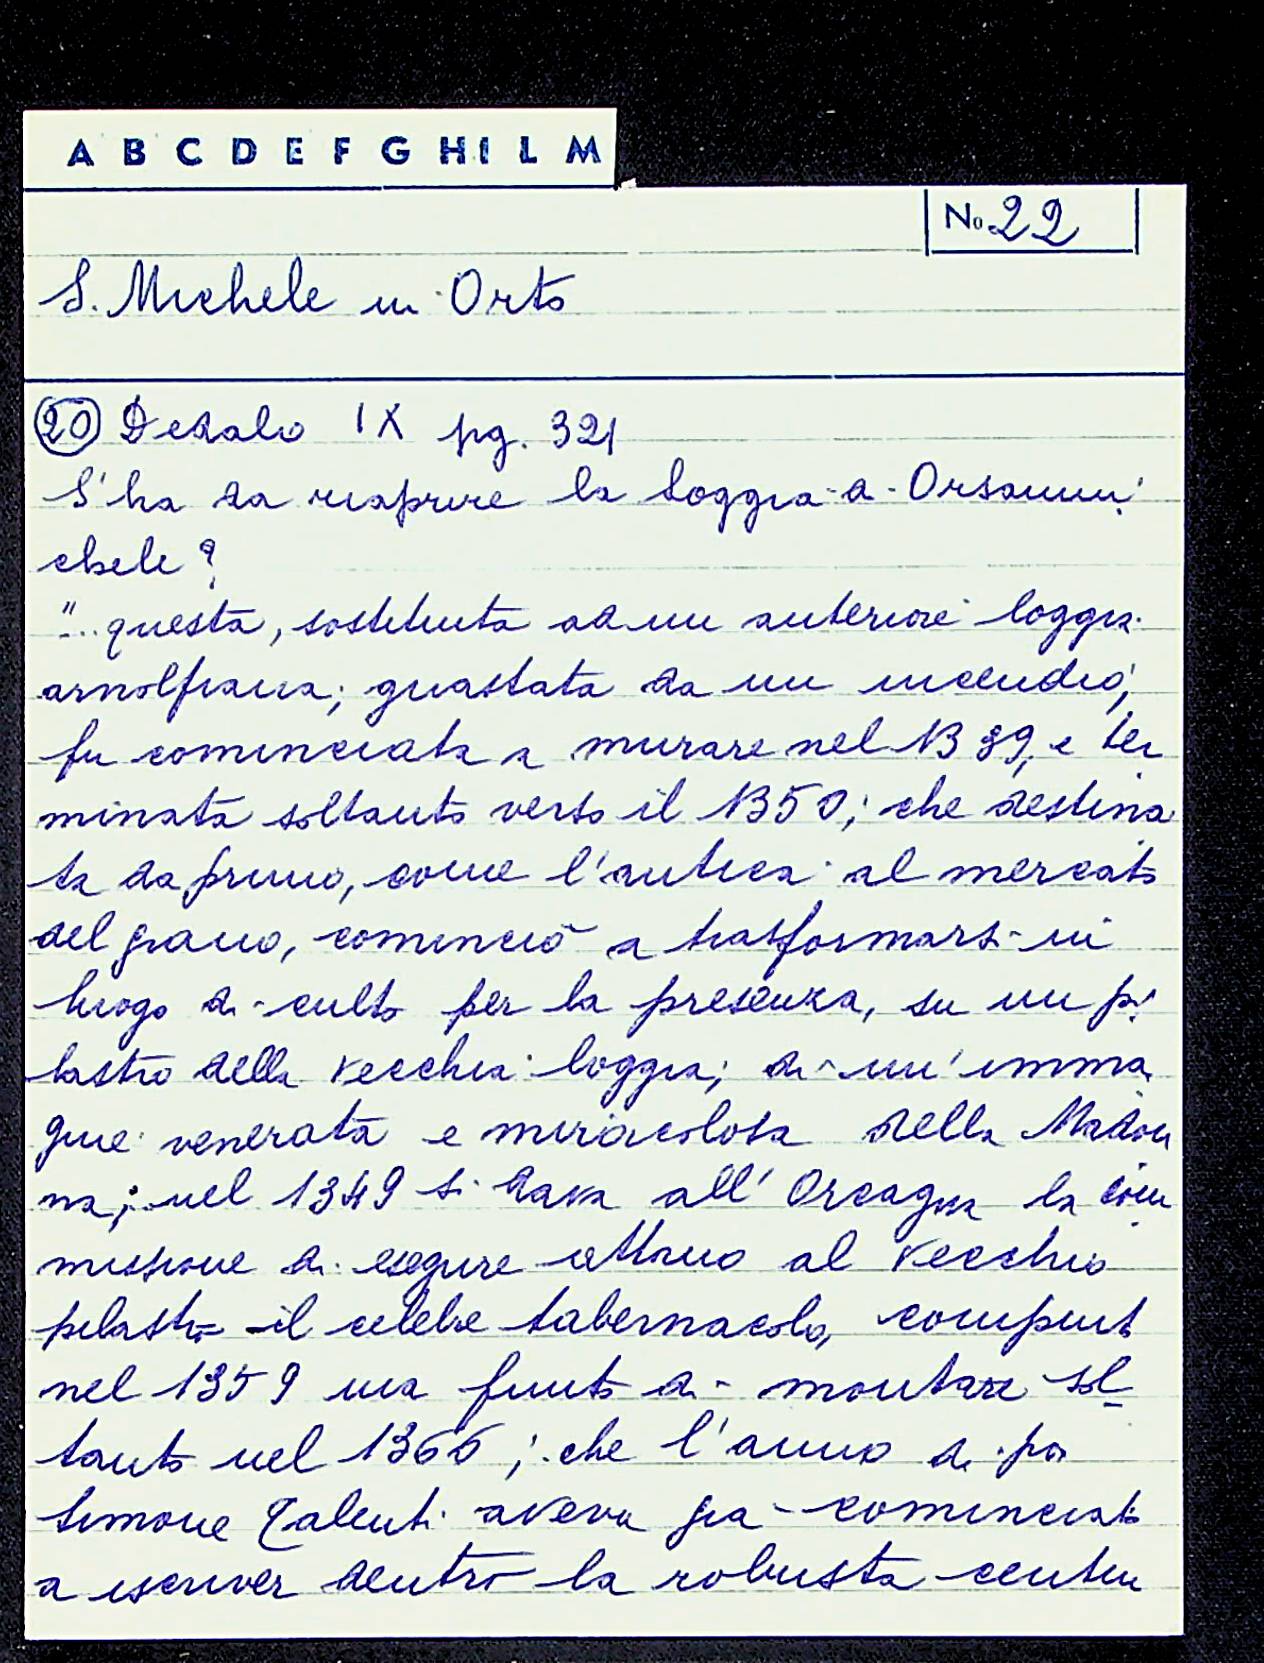 A B C D E F G H I L M
No. 22
S. Michele in Orto
20 Dedalo IX pg. 321
S'ha da riaprire la loggia a Orsanmi
chele?
"... questa, sostituita ad un anteriore loggia
arnolfiana, guastata da un incendio,
fu cominciata a murare nel 1339, e ter
minata soltanto verso il 1350; che destina
ta da primo, come l'antica al mercato
del grano, cominciò a trasformarsi in
luogo di culto per la presenza, su un pi
lastro della vecchia loggia, di un'imma
gine venerata e miracolosa della Madon
na; nel 1349 si dava all'Orcagna la com
missione di eseguire attorno al vecchio
pilastro il celebre tabernacolo, compiuto
nel 1359 ma finito di montare sol
tanto nel 1366; che l'anno di poi
Simone Talenti aveva già cominciato
a iscriver dentro la robusta centin